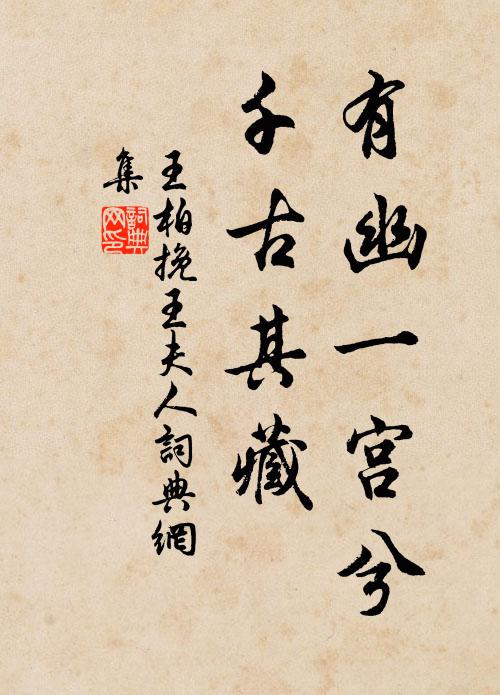 有幽一宫兮
千古其藏
王柏挽王夫人詞典網
集
詞典网印